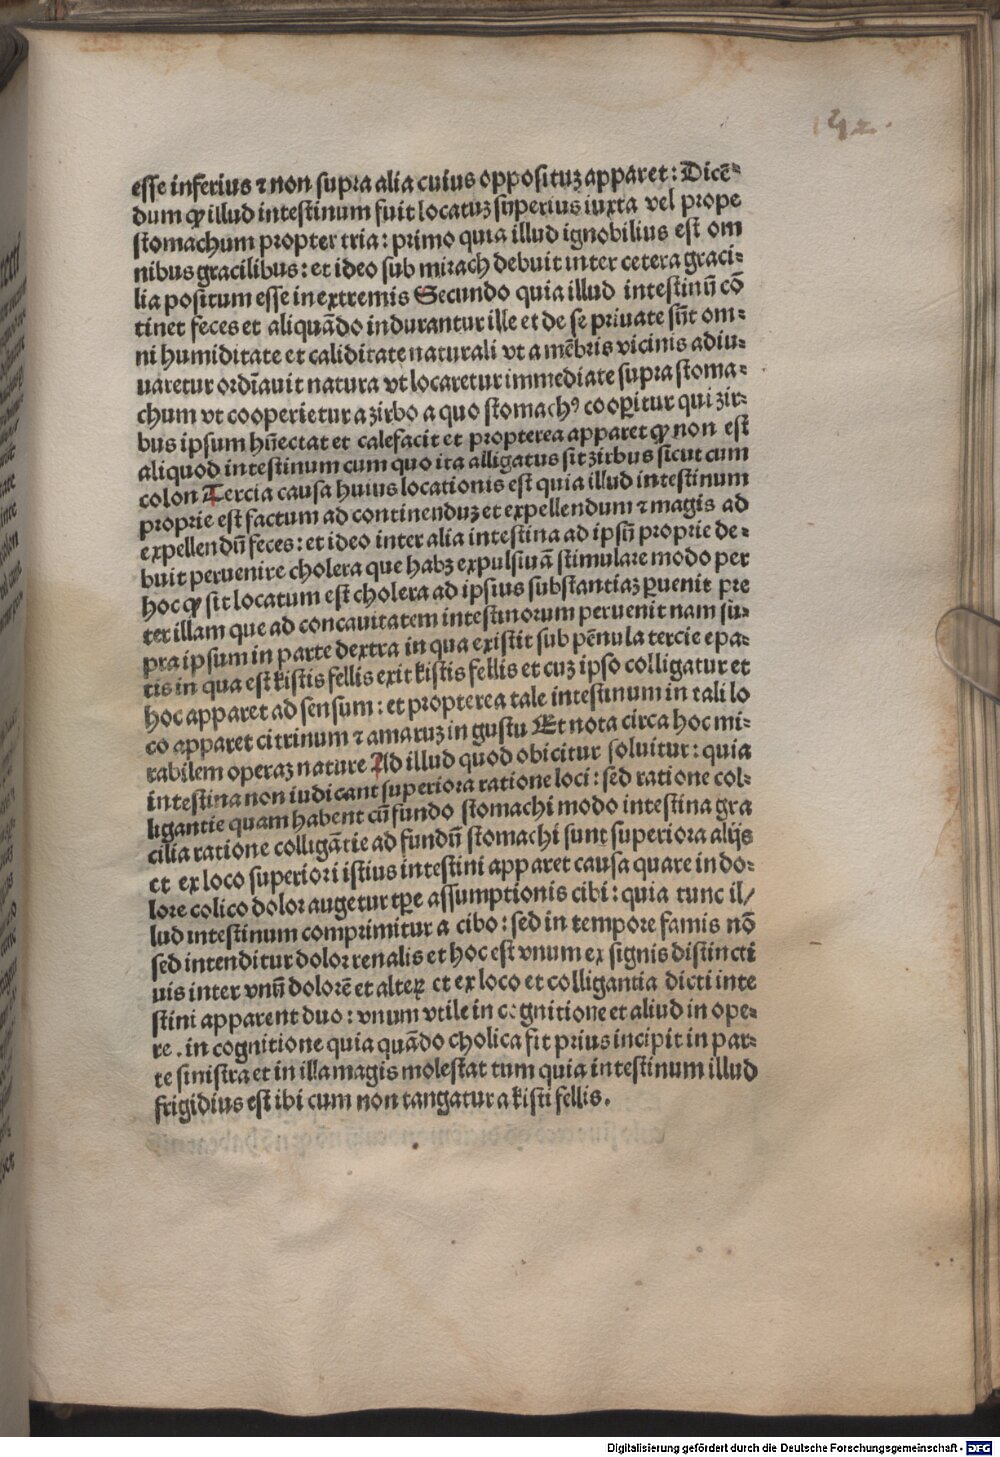 142.
esse inferius ⁊ non supra alia cuius opposituꝫ apparet: Dicē⸗
dum ꝙ illud intestinum fuit locatuꝫ superius iuxta vel prope
stomachum propter tria: primo quia illud ignobilius est om
nibus gracilibus: et ideo sub mirach debuit inter cetera graci⸗
lia positum esse in extremis Secundo quia illud intestinū cō
tinet feces et aliquādo indurantur ille et de se priuate sūt om⸗
ni humiditate et caliditate naturali vt a mēbris vicinis adiu⸗
uaretur ordīauit natura vt locaretur immediate supra stoma⸗
chum vt cooperietur a zirbo a quo stomachꝰ cooꝑitur qui zir⸗
bus ipsum hūectat et calefacit et propterea apparet ꝙ non est
aliquod intestinum cum quo ita alligatus sit zirbus sicut cum
colon Tercia causa huius locationis est quia illud intestinum
proprie est factum ad continenduꝫ et expellendum ⁊ magis ad
expellendū feces: et ideo inter alia intestina ad ipsū proprie de⸗
buit peruenire cholera que habꝫ expulsiuā stimulare modo per
hoc ꝙ sit locatum est cholera ad ipsius substantiaꝫ ꝑuenit pre
ter illam que ad concauitatem intestinorum peruenit nam su⸗
pra ipsum in parte dextra in qua existit sub pēnula tercie epa⸗
tis in qua est kistis fellis exit kistis fellis et cuꝫ ipso colligatur et
hoc apparet ad sensum: et propterea tale intestinum in tali lo
co apparet citrinum ⁊ amaruꝫ in gustu Et nota circa hoc mi⸗
rabilem operaꝫ nature Ad illud quod obicitur soluitur: quia
intestina non iudicant superiora ratione loci: sed ratione col⸗
ligantie quam habent cū fundo stomachi modo intestina gra
cilia ratione colligātie ad fundū stomachi sunt superiora alijs
et ex loco superiori istius intestini apparet causa quare in do⸗
lore colico dolor augetur tꝑe assumptionis cibi: quia tunc il/
lud intestinum comprimitur a cibo: sed in tempore famis nō
sed intenditur dolor renalis et hoc est vnum ex signis distincti
uis inter vnū dolorē et alteꝝ et ex loco et colligantia dicti inte
stini apparent duo: vnum vtile in cognitione et aliud in ope⸗
re . in cognitione quia quādo cholica fit prius incipit in par⸗
te sinistra et in illa magis molestat tum quia intestinum illud
frigidius est ibi cum non tangatur a kisti fellis.
Digitalisierung gefördert durch die Deutsche Forschungsgemeinschaft - DFG